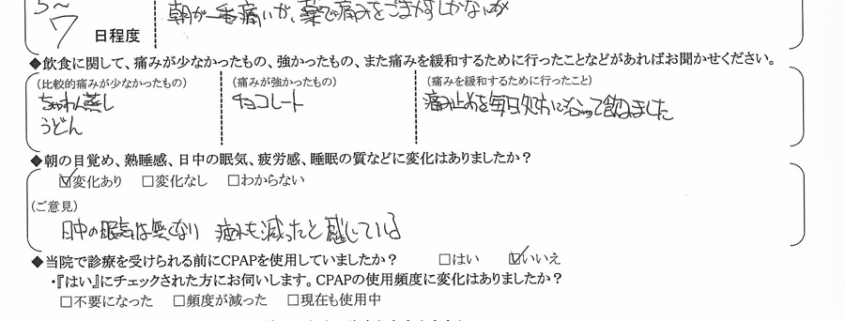 5～
7 日程度
朝が一番痛いが、薬で痛みをごまかすしかないが
◆飲食に関して、痛みが少なかったもの、強かったもの、また痛みを緩和するために行ったことなどがあればお聞かせください。
(比較的痛みが少なかったもの) (痛みが強かったもの) (痛みを緩和するために行ったこと)
ちゃわん蒸し チョコレート 痛み止めを毎日処方に沿って飲みました
うどん
◆朝の目覚め、熟睡感、日中の眠気、疲労感、睡眠の質などに変化はありましたか?
☑変化あり □変化なし □わからない
(ご意見)
日中の眠気は無くなり 痛みも減ったと感じている
◆当院で診療を受けられる前にCPAPを使用していましたか? □はい ☑いいえ
・『はい』にチェックされた方にお伺いします。CPAPの使用頻度に変化はありましたか?
□不要になった □頻度が減った □現在も使用中